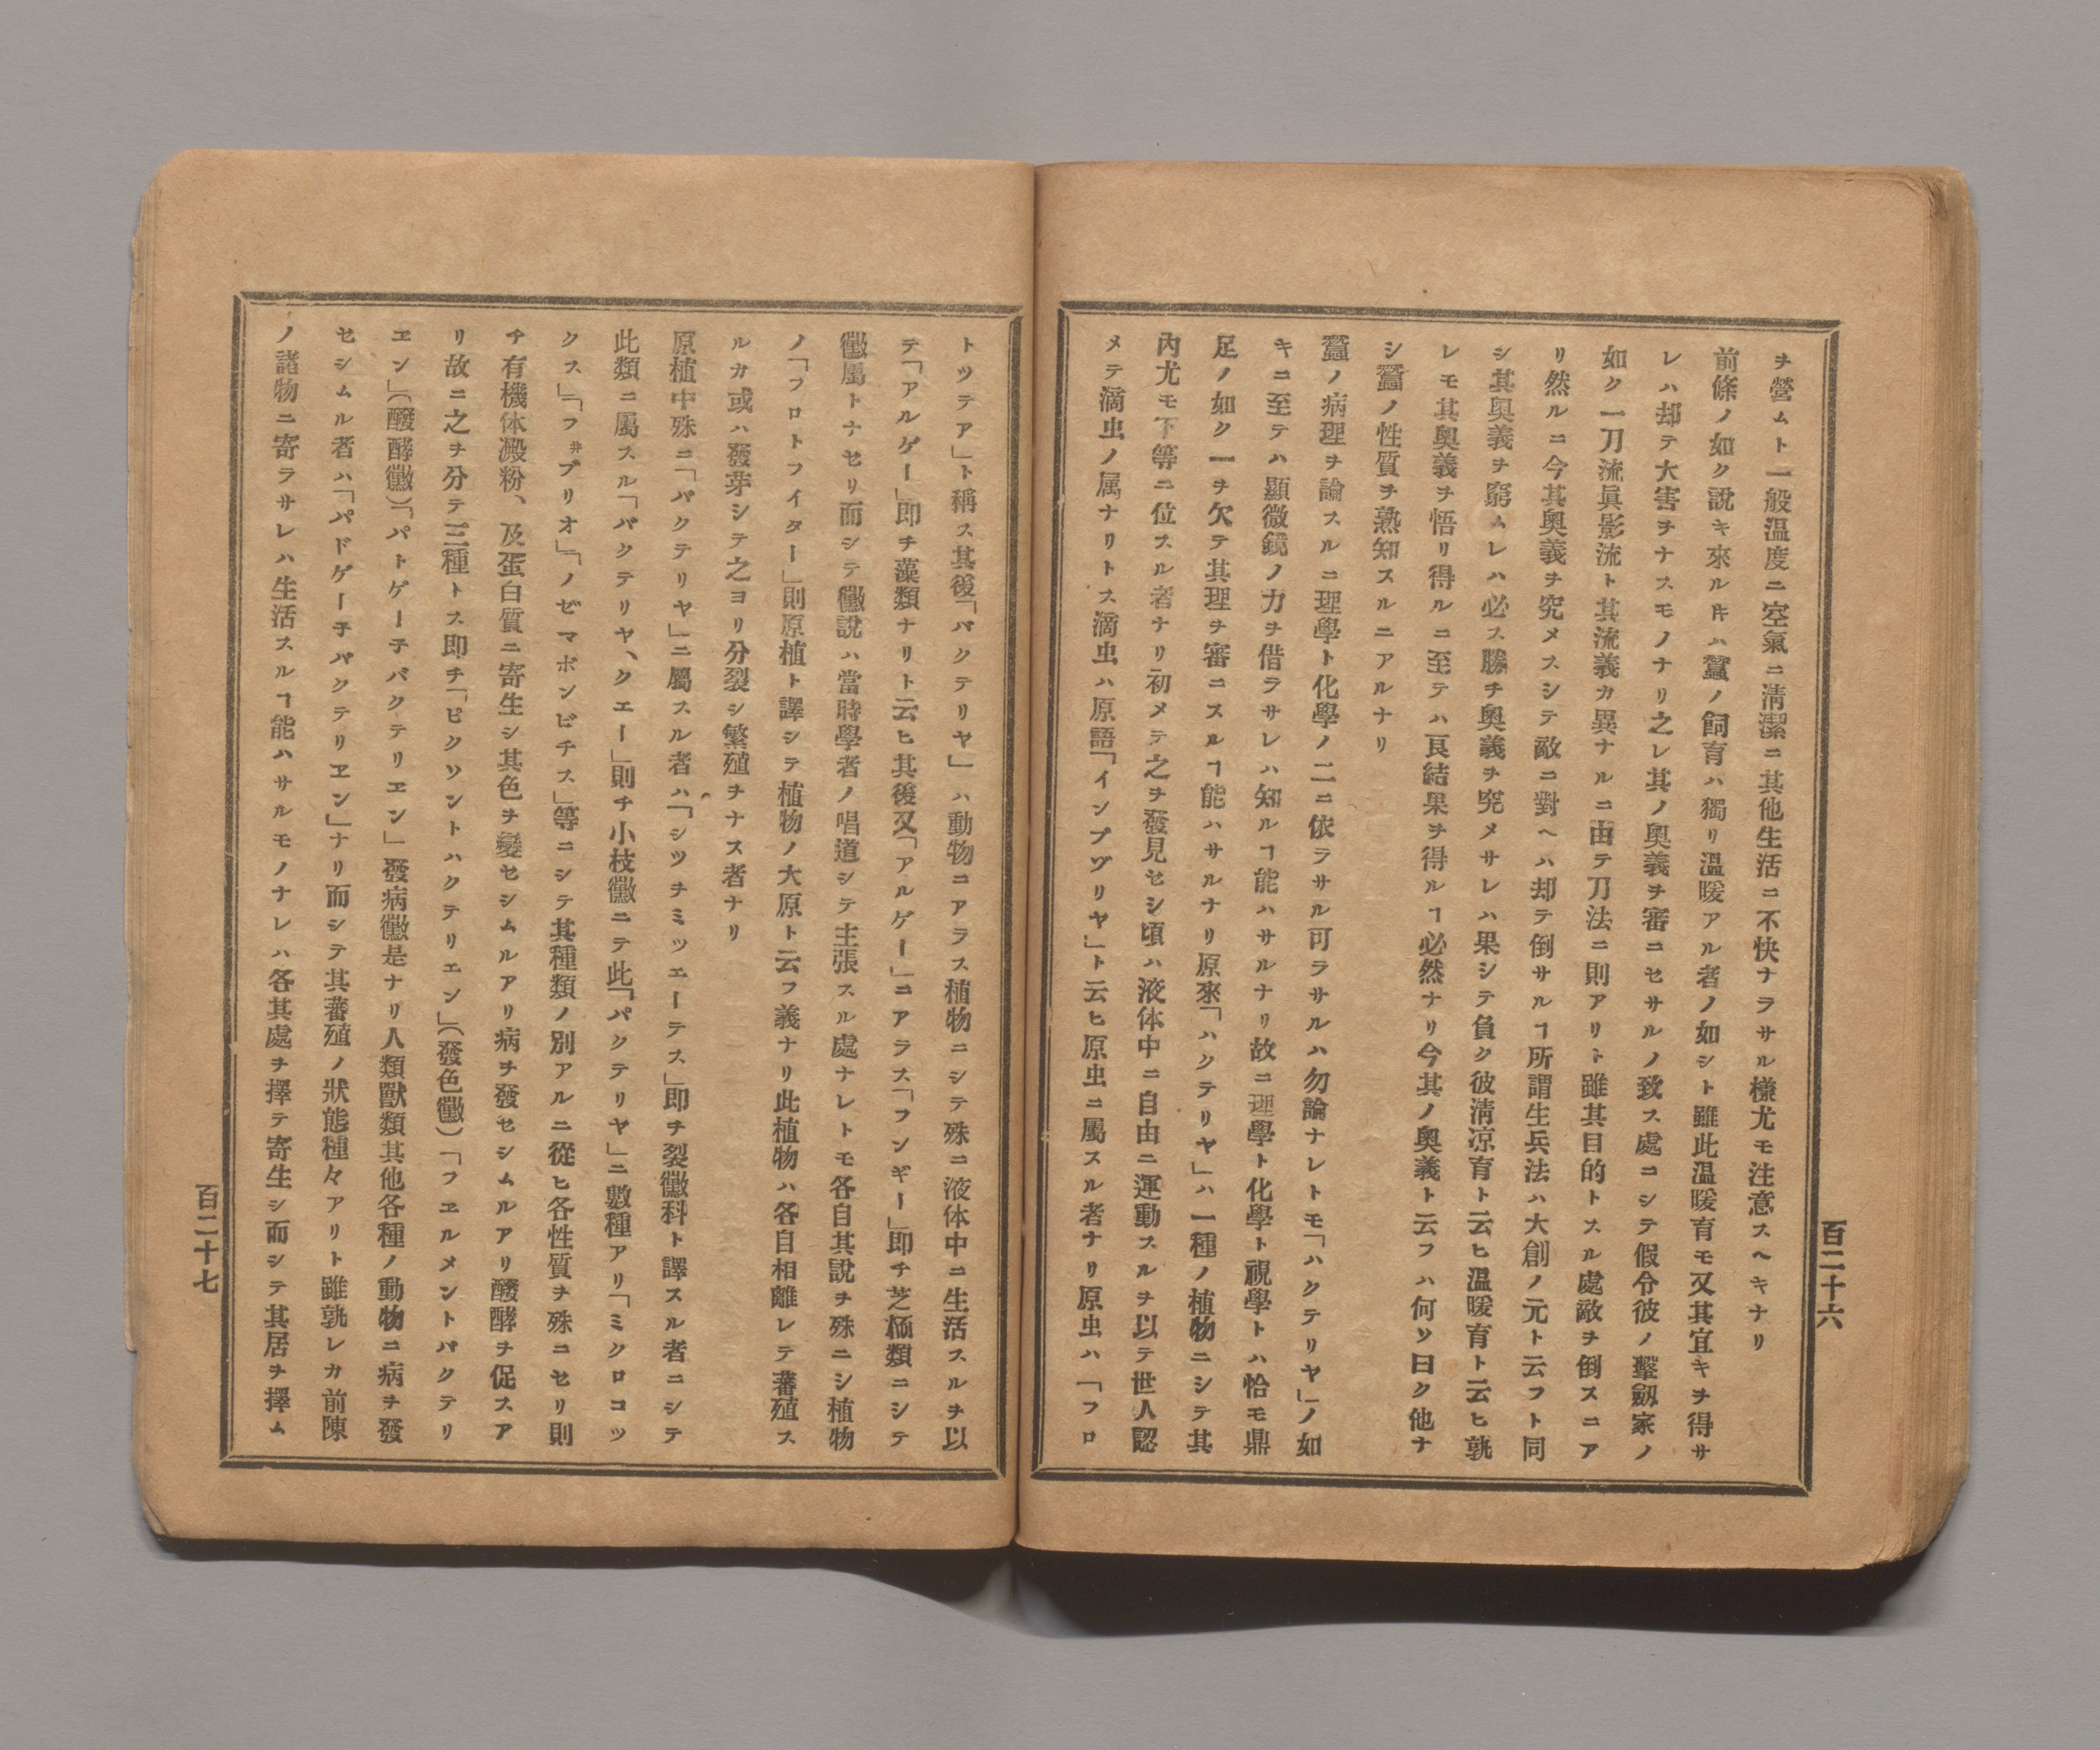 百二十六
ヲ營ムト一般温度ニ空氣ニ淸潔ニ其他生活ニ不快ナラサル樣尤モ注意スヘキナリ
前條ノ如ク說キ來ル𪜈ハ蠶ノ飼育ハ獨リ温暖アル者ノ如シト雖此温暖育モ又其宜キヲ得サ
レハ却テ大害ヲナスモノナリ之レ其ノ奧義ヲ審ニセサルノ致ス處ニシテ假令彼ノ擊劔家ノ
如ク一刀流眞影流ト其流義カ異ナルニ由テ刀法ニ則アリト雖其目的トスル處敵ヲ倒スニア
リ然ルニ今其奧義ヲ究メスシテ敵ニ對ヘハ却テ倒サルヿ所謂生兵法ハ大創ノ元ト云フト同
シ其奧義ヲ窮ムレハ必ス勝チ奧義ヲ究メサレハ果シテ負ク彼淸凉育ト云ヒ温暖育ト云ヒ孰
レモ其奧義ヲ悟リ得ルニ至テハ良結果ヲ得ルヿ必然ナリ今其ノ奧義ト云フハ何ソ曰ク他ナ
シ蠶ノ性質ヲ熟知スルニアルナリ
蠶ノ病理ヲ論スルニ理學ト化學ノ二ニ依ラサル可ラサルハ勿論ナレトモ「ハクテリヤ」ノ如
キニ至テハ顯微鏡ノ力ヲ借ラサレハ知ルヿ能ハサルナリ故ニ理學ト化學ト視學トハ恰モ鼎
足ノ如ク一ヲ欠テ其理ヲ審ニスルヿ能ハサルナリ原來「ハクテリヤ」ハ一種ノ植物ニシテ其
內尤モ下等ニ位スル者ナリ初メテ之ヲ發見セシ頃ハ液体中ニ自由ニ運動スルヲ以テ世人認
メテ滴虫ノ属ナリトス滴虫ハ原語「インプヅリヤ」ト云ヒ原虫ニ屬スル者ナリ原虫ハ「フロ
トツテア」ト稱ス其後「バクテリヤ」ハ動物ニアラス植物ニシテ殊ニ液体中ニ生活スルヲ以
テ「アルゲー」即チ藻類ナリト云ヒ其後又「アルゲー」ニアラス「フンギー」即チ芝栭類ニシテ
黴屬トナセリ而シテ黴說ハ當時學者ノ唱道シテ主張スル處ナレトモ各自其說ヲ殊ニシ植物
ノ「フロトフイター」則原植ト譯シテ植物ノ大原ト云フ義ナリ此植物ハ各自相離レテ蕃殖ス
ルカ或ハ發芽シテ之ヨリ分裂シ繁殖ヲナス者ナリ
原植中殊ニ「バクテリヤ」ニ屬スル者ハ「シツチミツエーテス」即チ裂黴科ト譯スル者ニシテ
此類ニ屬スル「パクテリヤ、クエー」則チ小枝黴ニテ此「パクテリヤ」ニ數種アリ「ミクロコツ
クス」「フ井ブリオ」「ノゼマボンビチス」等ニシテ其種類ノ別アルニ從ヒ各性質ヲ殊ニセリ則
チ有機体澱粉、及蛋白質ニ寄生シ其色ヲ變セシムルアリ病ヲ發セシムルアリ醱酵ヲ促スア
リ故ニ之ヲ分テ三種トス即チ「ピクソントハクテリエン」(發色黴)「フヱルメントバクテリ
ヱン」(醱酵黴)「パトゲーチバクテリエン」發病黴是ナリ人類獸類其他各種ノ動物ニ病ヲ發
セシムル者ハ「パドゲーチパクテリヱン」ナリ而シテ其蕃殖ノ狀態種々アリト雖孰レカ前陳
ノ諸物ニ寄ラサレハ生活スルヿ能ハサルモノナレハ各其處ヲ擇テ寄生シ而シテ其居ヲ擇ム
百二十七